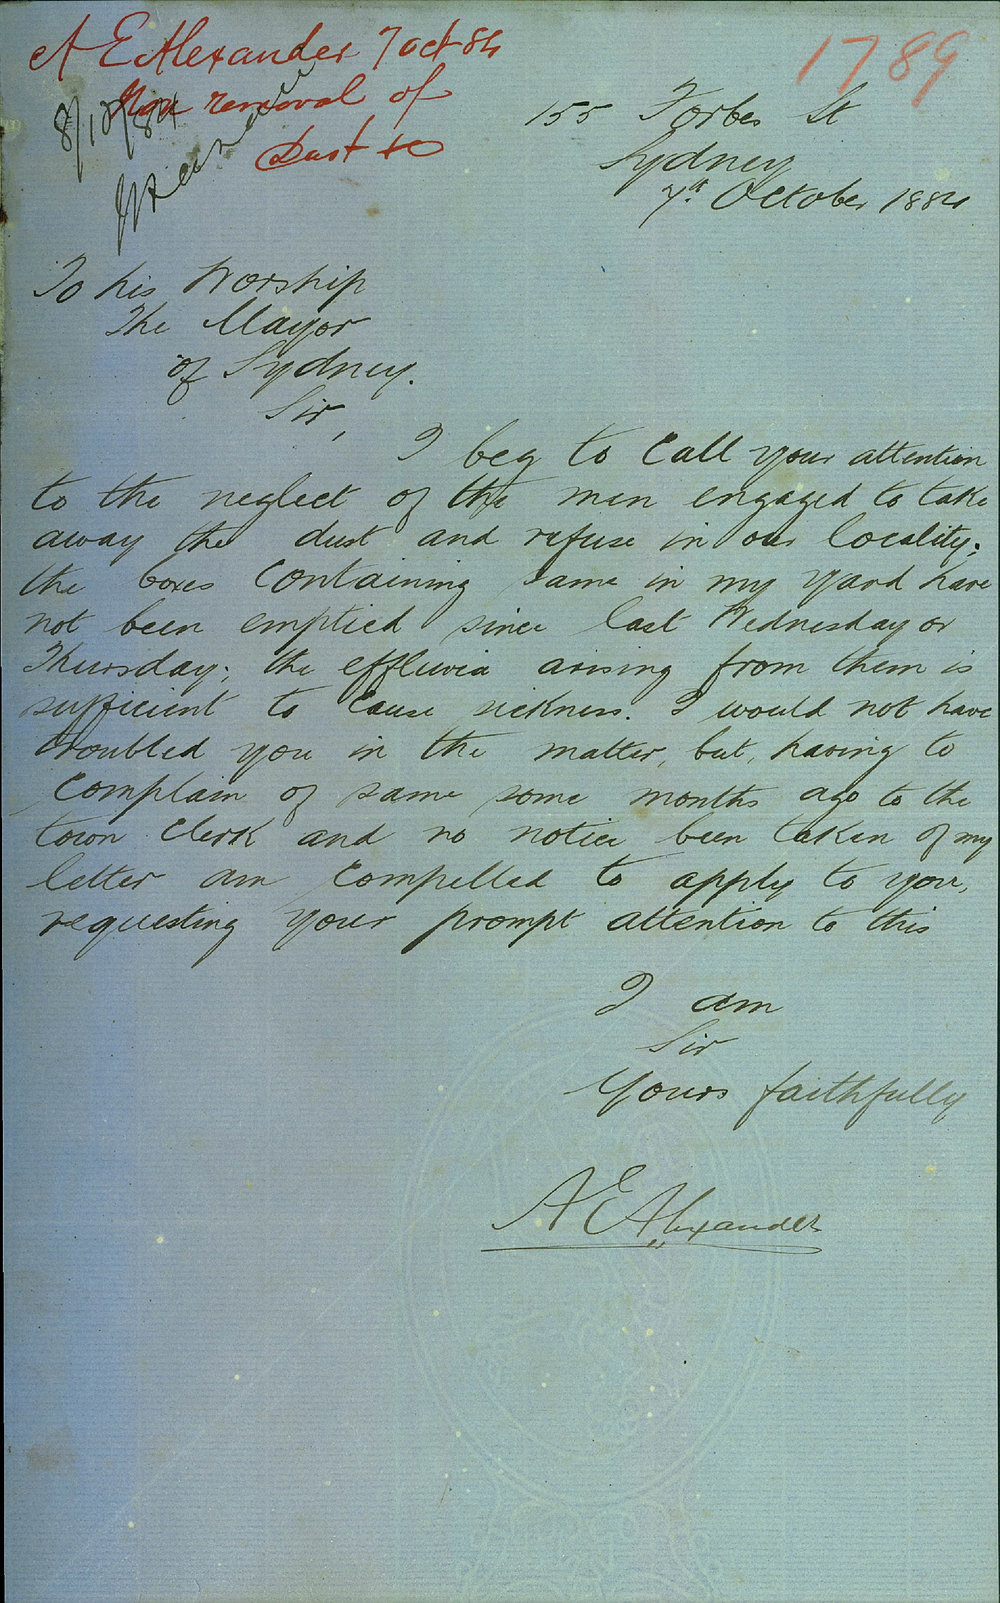 A E Alexander 7 Oct 84
removal of
Dust &c
8/10/84
1789
155 Forbes St
Sydney
7th October 1884
To his Worship
The Mayor
of Sydney.
Sir,
I beg to call your attention
to the neglect of the men engaged to take
away the dust and refuse in our locality;
the boxes containing same in my yard have
not been emptied since last Wednesday or
Thursday; the effluvia arising from them is
sufficient to cause sickness. I would not have
troubled you in the matter, but, having to
complain of same some months ago to the
town Clerk and no notice been taken of my
letter am compelled to apply to you,
requesting your prompt attention to this
I am
Sir
Yours faithfully
A E Alexander